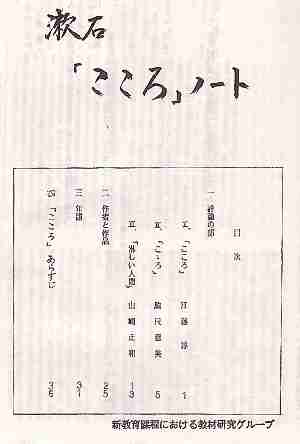 漱石
「こころ」ノート
目次
一 評論の部
I、「こころ」 江藤淳 1
II、「こころ」 5
III、「淋しい人間」 山崎正和 13
二 作者と作品 25
三 年譜 31
四 「こころ」あらすじ 36
新教育課程における教材研究グループ